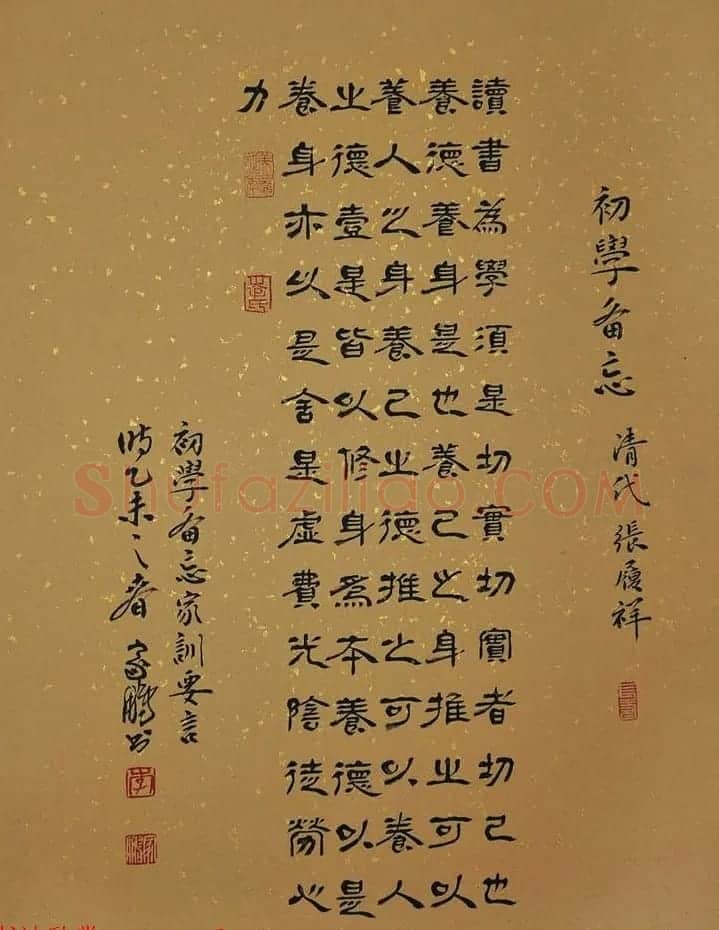 初學备忘 清代張履祥
讀書為學須是切實切實者切己也
養德養身是也養己之身推之可以
養人之身養己之德推之可以養人
之德壹是皆以修身為本養德以是
養身亦以是舍是虛費光陰徒勞心
力
初學备忘家訓要言
時乙未之春家鵬书
Shufaziliao.COM